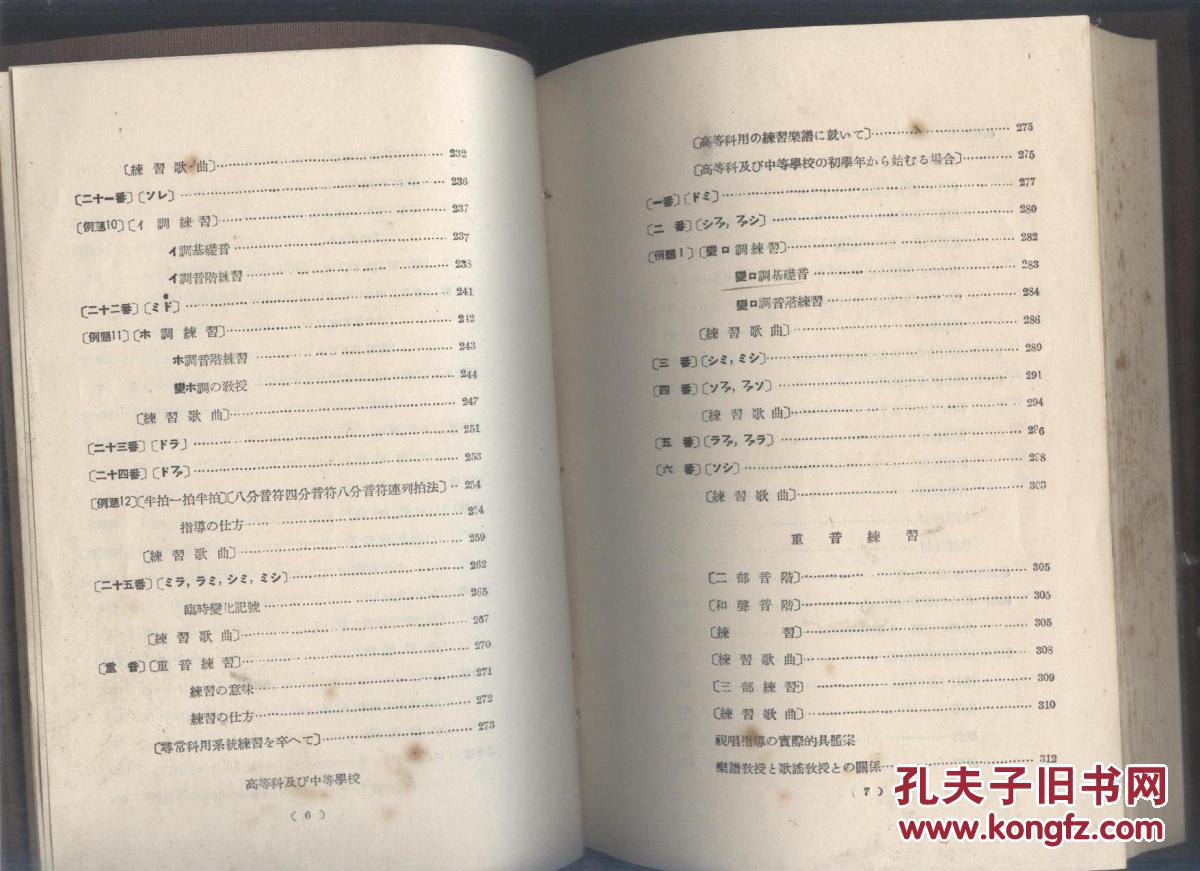 〔練習歌曲〕 232
〔二十一番〕〔ソレ〕 236
〔例題10〕〔イ 調練習〕 237
イ調基礎音 237
イ調音階練習 238
〔二十二番〕〔ミド〕 241
〔例題11〕〔ホ 調練習〕 242
ホ調音階練習 243
變ホ調の敎授 244
〔練習歌曲〕 247
〔二十三番〕〔ドラ〕 251
〔二十四番〕〔ドファ〕 253
〔例題12〕〔半拍一拍半拍〕〔八分音符四分音符八分音符連列拍法〕 254
指導の仕方 254
〔練習歌曲〕 259
〔二十五番〕〔ミラ, ラミ, シミ, ミシ〕 262
臨時變化記號 265
〔練習歌曲〕 267
〔重音〕〔重音練習〕 270
練習の意味 271
練習の仕方 272
〔尋常科用系統練習を卒へて〕 273
高等科及び中等學校
( 6 )
〔高等科用の練習樂譜に就いて〕 275
〔高等科及び中等學校の初學年から始むる場合〕 275
〔一番〕〔ドミ〕 277
〔二 番〕〔シファ, ファシ〕 280
〔例題1〕〔變ロ調練習〕 282
變ロ調基礎音 283
變ロ調音階練習 284
〔練習歌曲〕 286
〔三 番〕〔シミ, ミシ〕 289
〔四 番〕〔ソファ, ファソ〕 291
〔練習歌曲〕 294
〔五 番〕〔ラファ, ファラ〕 296
〔六 番〕〔ソシ〕 298
〔練習歌曲〕 303
重音練習
〔二部音階〕 305
〔和聲音階〕 305
〔練 習〕 305
〔練習歌曲〕 308
〔三部練習〕 309
〔練習歌曲〕 310
視唱指導の實際的具體案
樂譜敎授と歌謠敎授との關係 312
( 7 )
孔夫子旧书网
www.kongfz.com